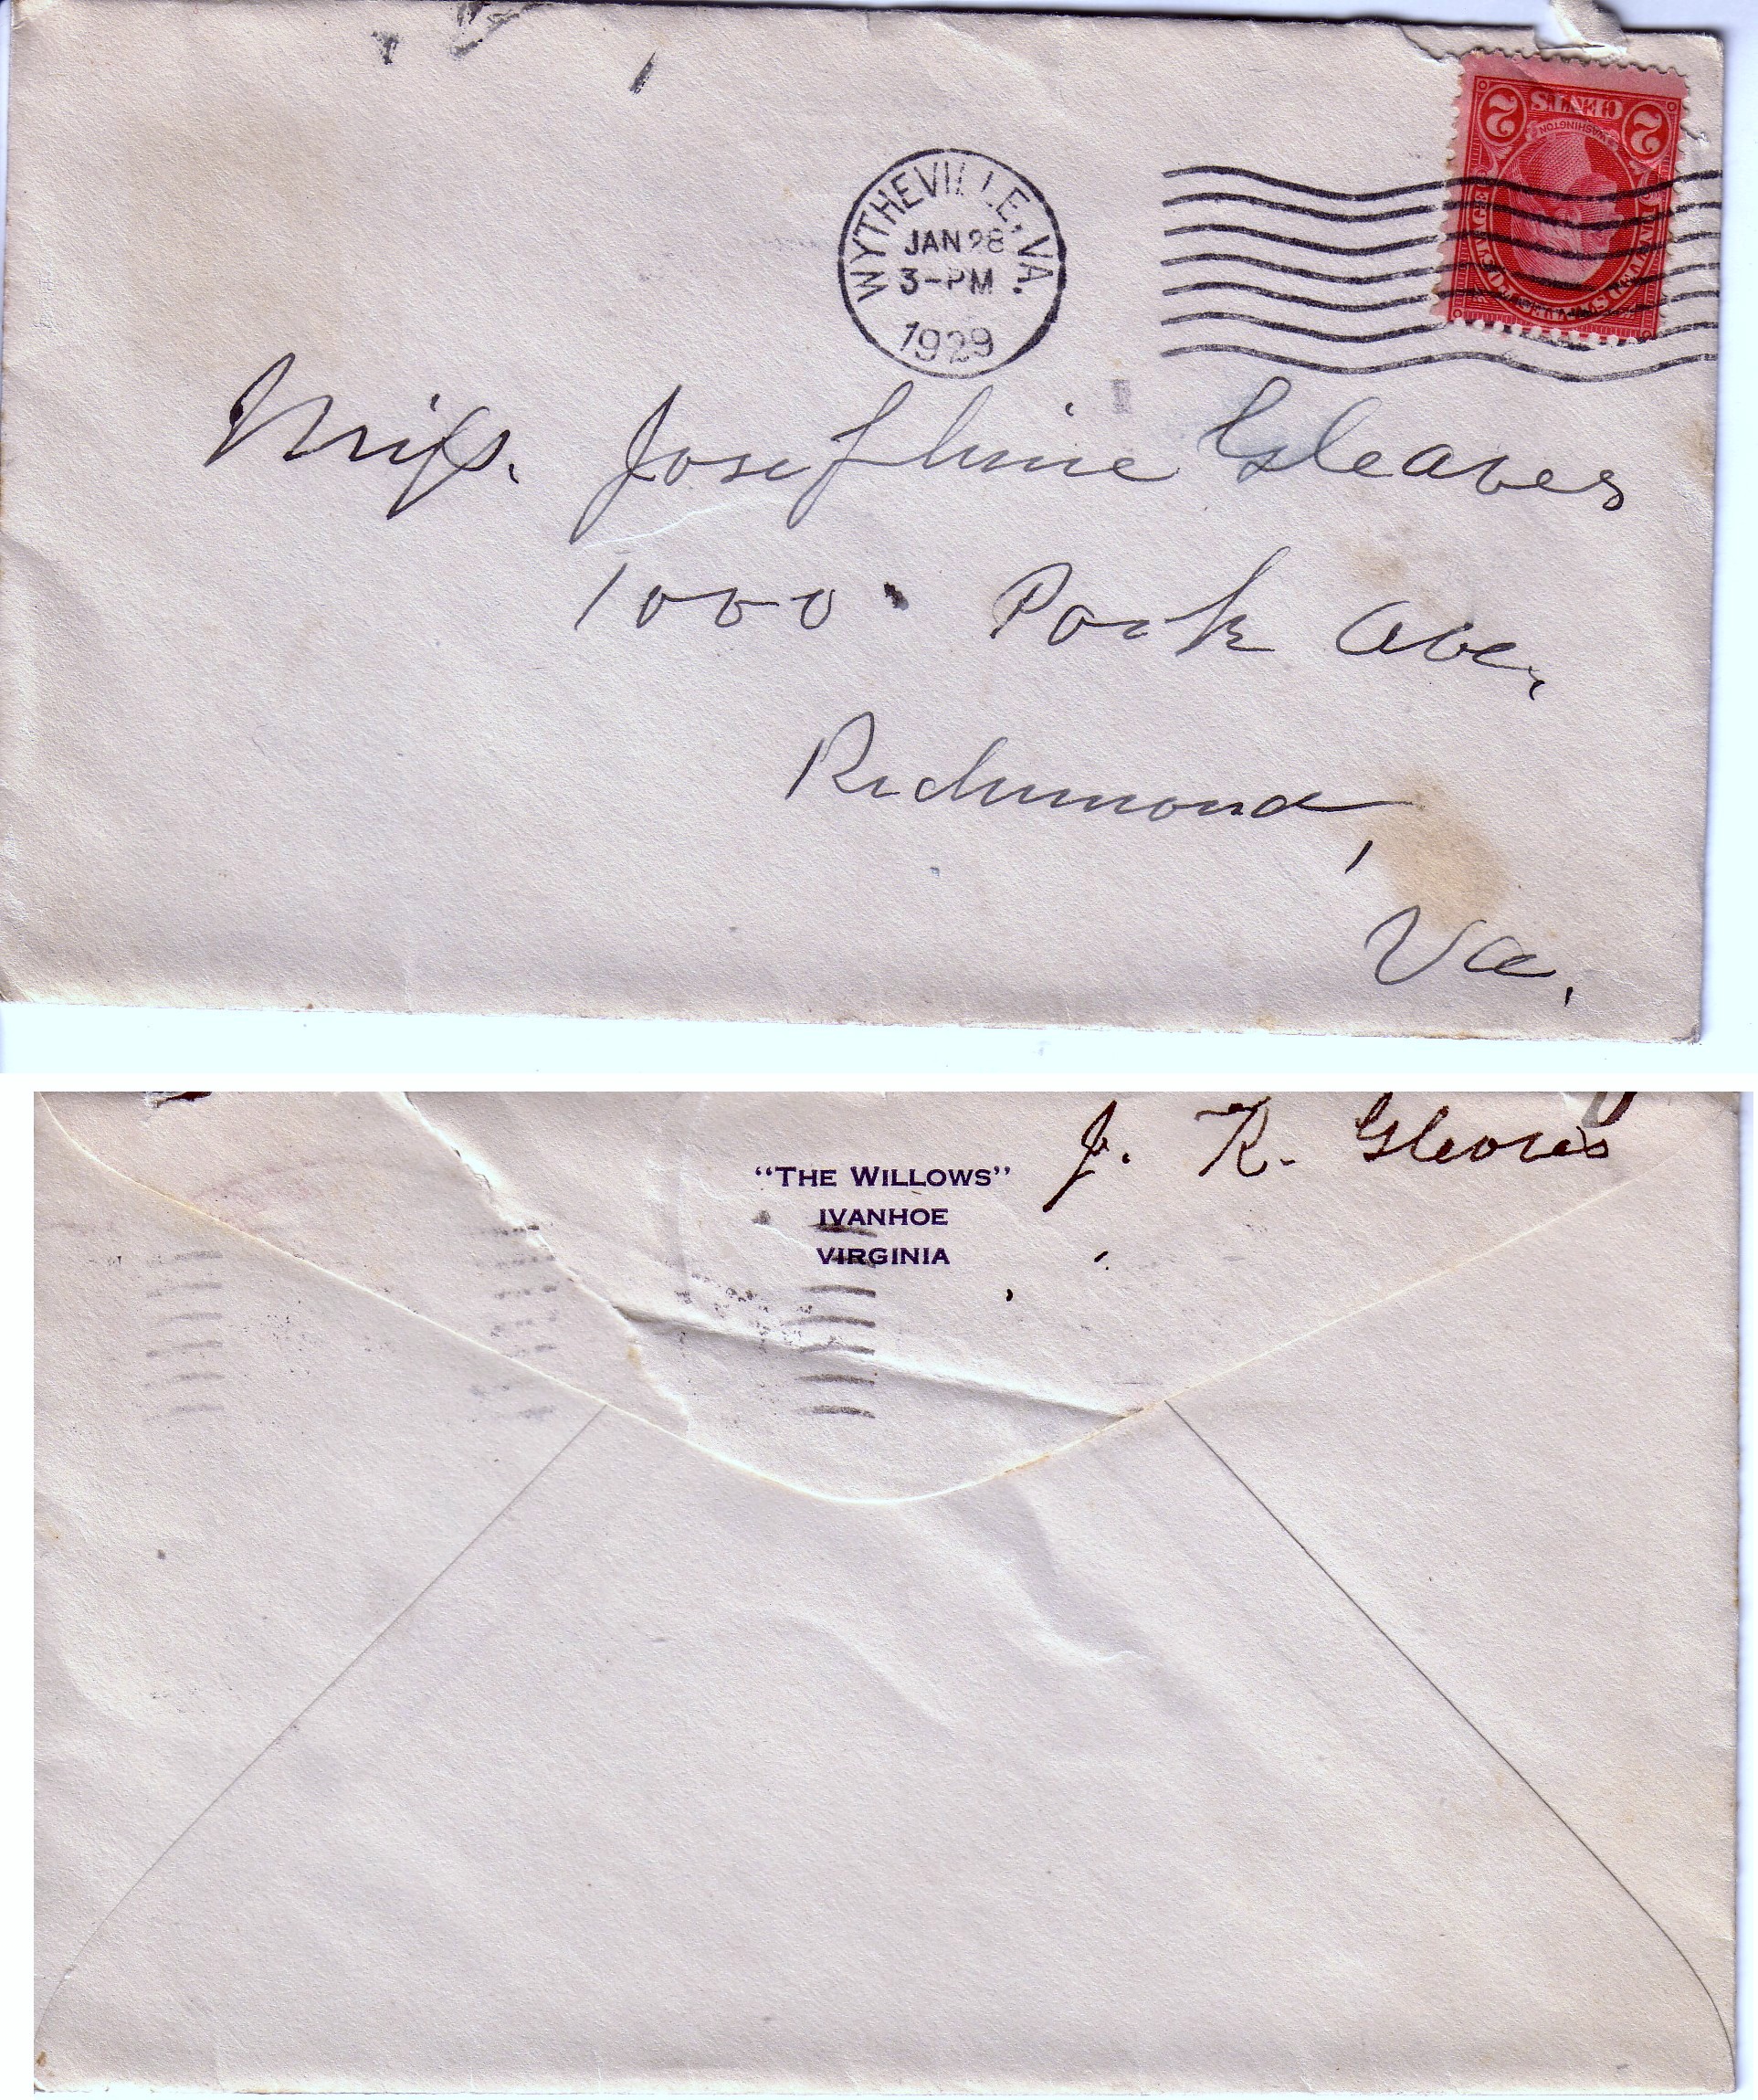 WYTHEVILLE, VA.
JAN 28
3-PM
1929
2 CENTS 2
WASHINGTON
UNITED STATES POSTAGE
Miss. Josephine Gleaves
1000 Park Ave,
Richmond,
Va.
J. R. Gleaves
“THE WILLOWS”
IVANHOE
VIRGINIA